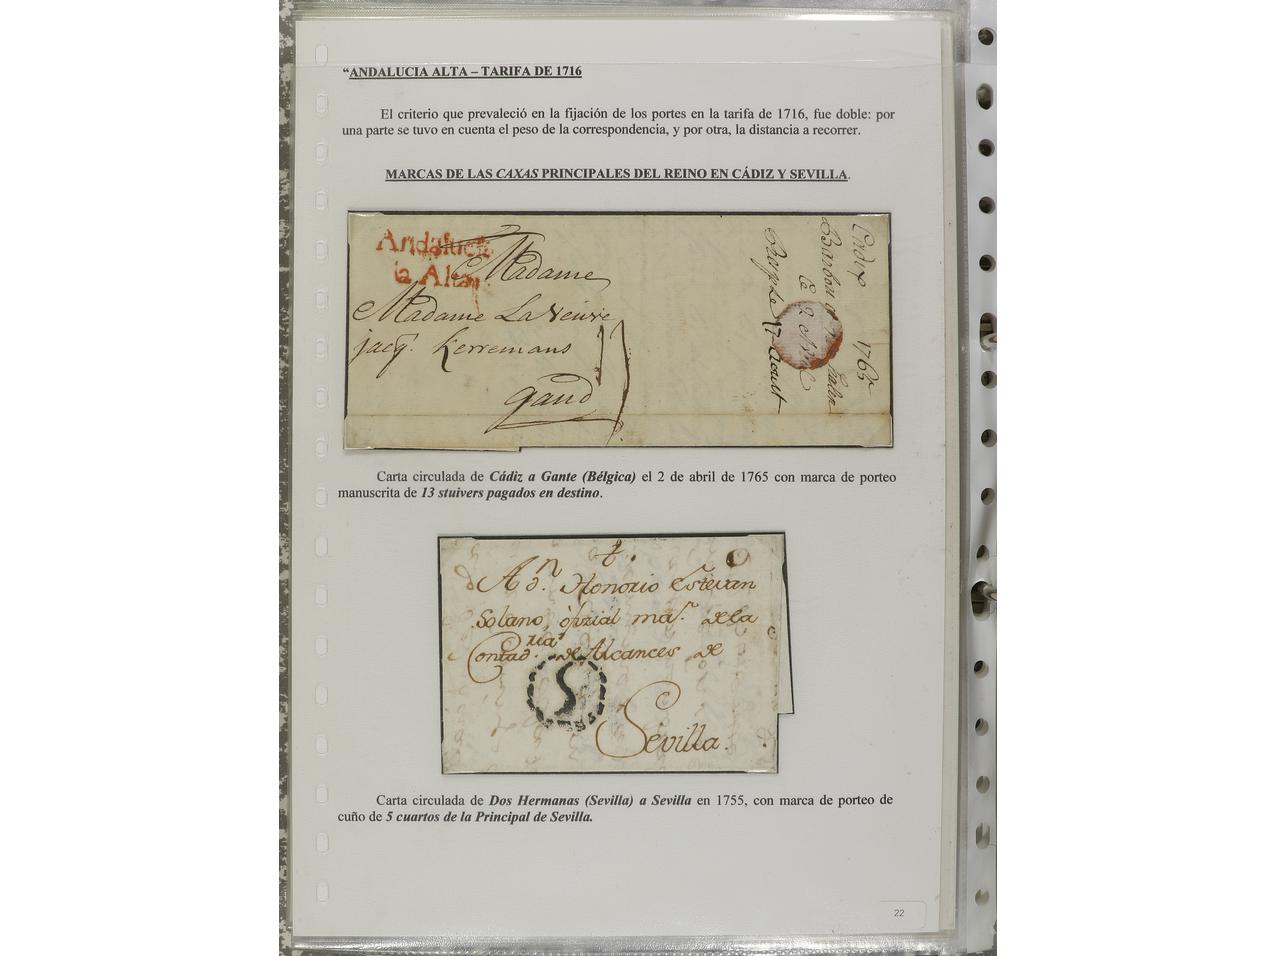 “ANDALUCIA ALTA – TARIFA DE 1716
El criterio que prevaleció en la fijación de los portes en la tarifa de 1716, fue doble: por
una parte se tuvo en cuenta el peso de la correspondencia, y por otra, la distancia a recorrer.
MARCAS DE LAS CAXAS PRINCIPALES DEL REINO EN CÁDIZ Y SEVILLA.
Andalucia
la Alta
A Madame
Madame La Veuve
jacq. Kerremans
Gand
Cadix 1765
Ce 2 Avril
Le 17 Aoust
Carta circulada de Cádiz a Gante (Bélgica) el 2 de abril de 1765 con marca de porteo
manuscrita de 13 stuivers pagados en destino.
A dn. Honorio Estevan
Solano, oficial mar. de la
Contadria. de Alcances de
S
Sevilla.
Carta circulada de Dos Hermanas (Sevilla) a Sevilla en 1755, con marca de porteo de
cuño de 5 cuartos de la Principal de Sevilla.
22